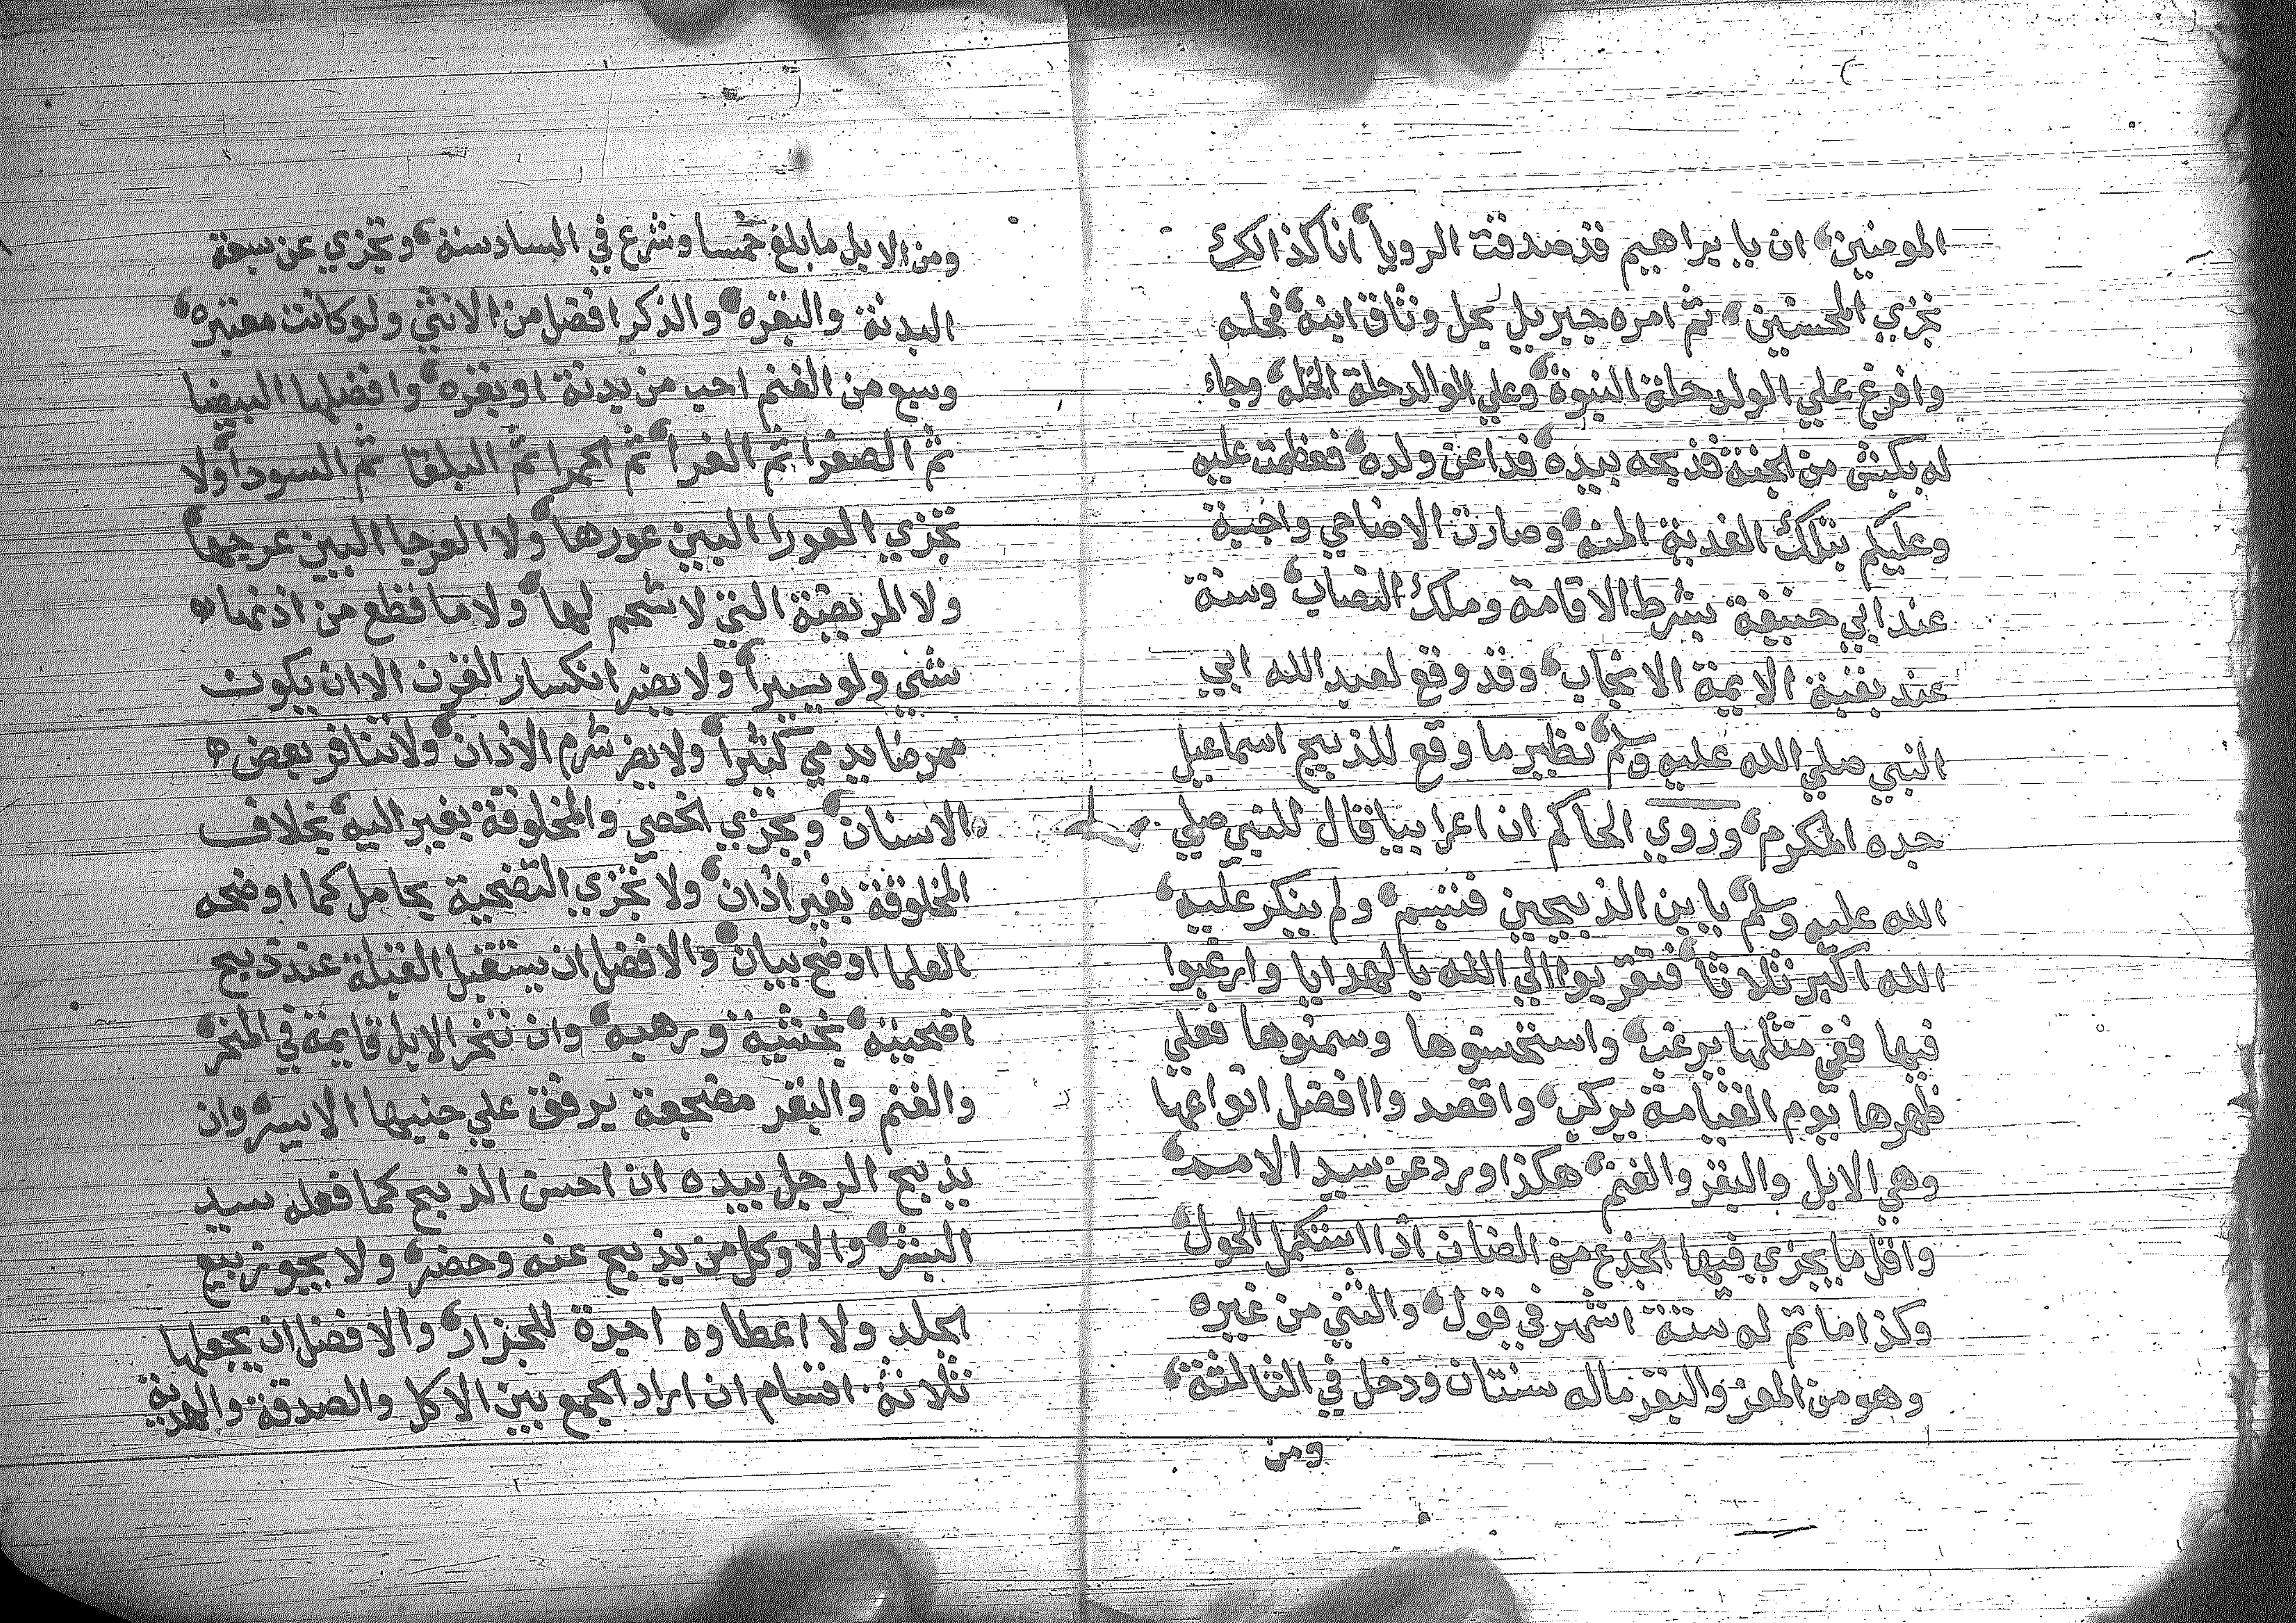 المومنين، ان يا براهيم قد صدقت الرويا، انا كذالك
نجزي المحسنين، ثم امره جبريل بحل وثاق ابنه، فحله
وافرغ علي الولد حلة النبوة، وعلي الوالد حلة الخلة، وجاء
له بكبش من الجنة فذبحه بيده، فداعن ولده، فعظمت عليه
وعليكم بتلك الفدية المنه، وصارت الاضاحي واجبة
عند ابي حنيفة بشرط الاقامة وملك النصاب، وسنة
عند بقية الايمة الانجاب، وقد وقع لعبد الله ابي
النبي صلي الله عليه وسلم، نظير ما وقع للذبيح اسماعيل
جده المكرم، وروي الحاكم ان اعرابيا قال للنبي صلي
الله عليه وسلم، يا بن الذبيحين فتبسم، ولم ينكر عليه،
الله اكبر ثلاثا، فتقربوا الي الله بالهدايا وارغبوا
فيها ففي مثلها يرغب، واستحسنوها وسمنوها فعلي
ظهرها يوم القيامة يركب، واقصدوا افضل انواعها
وهي الابل والبقر والغنم، هكذا ورد عن سيد الامم،
واقل ما يجزي فيها الجذع من الضان اذا استكمل الحول،
وكذا ما تم له ستة اشهر في قول، والثني من غيره
وهو من المعز والبقر ماله سنتان ودخل في الثالثة،
ومن
ومن الابل ما بلغ خمسا وشرع في السادسة، وتجزي عن سبعة
البدنة والبقره، والذكر افضل من الانثي ولو كانت معتبره،
وسبع من الغنم احب من بدنة او بقره، وافضلها البيضا
ثم الصفرا ثم الغبرا، ثم الحمرا ثم البلقا ثم السودا، ولا
تجزي العورا البين عورها، ولا العرجا البين عرجها،
ولا المريضة التي لا شحم لها، ولا ما قطع من اذنها
شئي ولو يسيرا، ولا يضر انكسار القرن الا ان يكون
ممرضا يدمي كثيرا، ولا يضر شرم الاذان، ولا تناثر بعض
الاسنان، ويجزي الخصي والمخلوقة بغير اليه، بخلاف
المخلوقة بغير اذان، ولا تجزي التضحية بحامل كما اوضحه
العلما اوضح بيان، والافضل ان يستقبل القبلة عند ذبح
اضحيته، بخشية ورهبه، وان تنحر الابل قايمة في المنحر،
والغنم والبقر مضجعة برفق علي جنبها الايسر، وان
يذبح الرجل بيده ان احسن الذبح كما فعله سيد
البشر، والا وكل من يذبح عنه وحضر، ولا يجوز بيع
الجلد ولا اعطاوه اجرة للجزار، والافضل ان يجعلها
ثلاثة اقسام ان اراد الجمع بين الاكل والصدقة والهدية